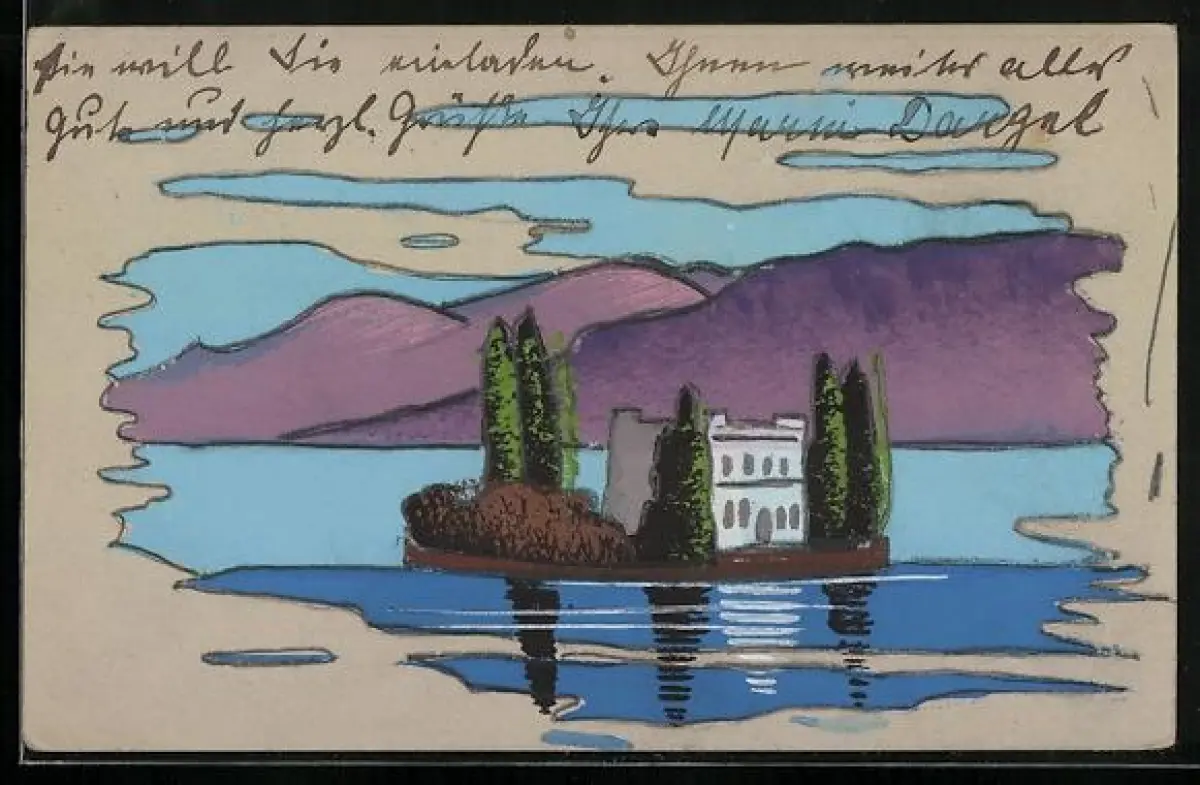 Sie will Sie einladen. Ihnen weiter alles
Gute und herzl. Grüße Ihre Dangel